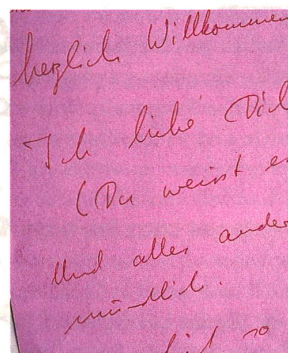 herzlich Willkommen
Ich liebe Dich
(Du weisst e
Und alles ande
mündlich.